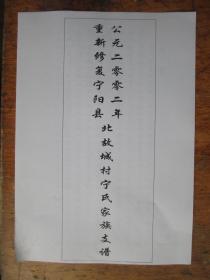 公元二零零二年
重新修复宁阳县
北故城村宁氏家族支谱